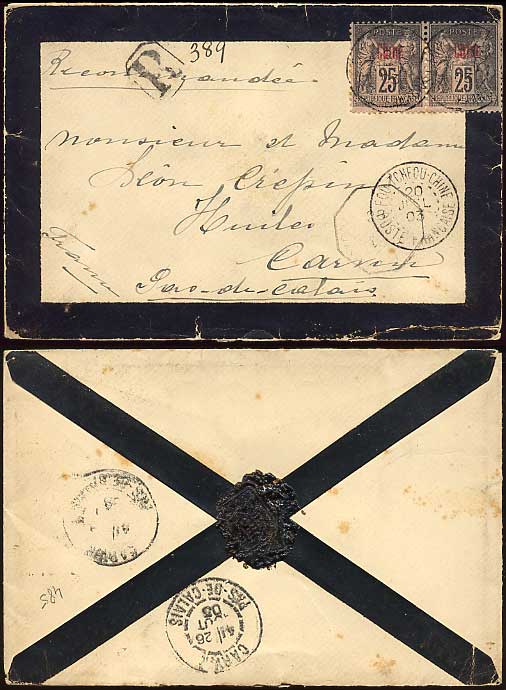 389
R
Recommandée
POSTE POSTE
Chine Chine
25 25
Monsieur et Madame
Léon Crépin
Huiles
Carvin
Pas-de-Calais
France
FOU-TCHEOU-CHINE
20
JUIL
03
POSTE FRANÇAISE
485
CARVIN
26
AOUT
03
PAS-DE-CALAIS